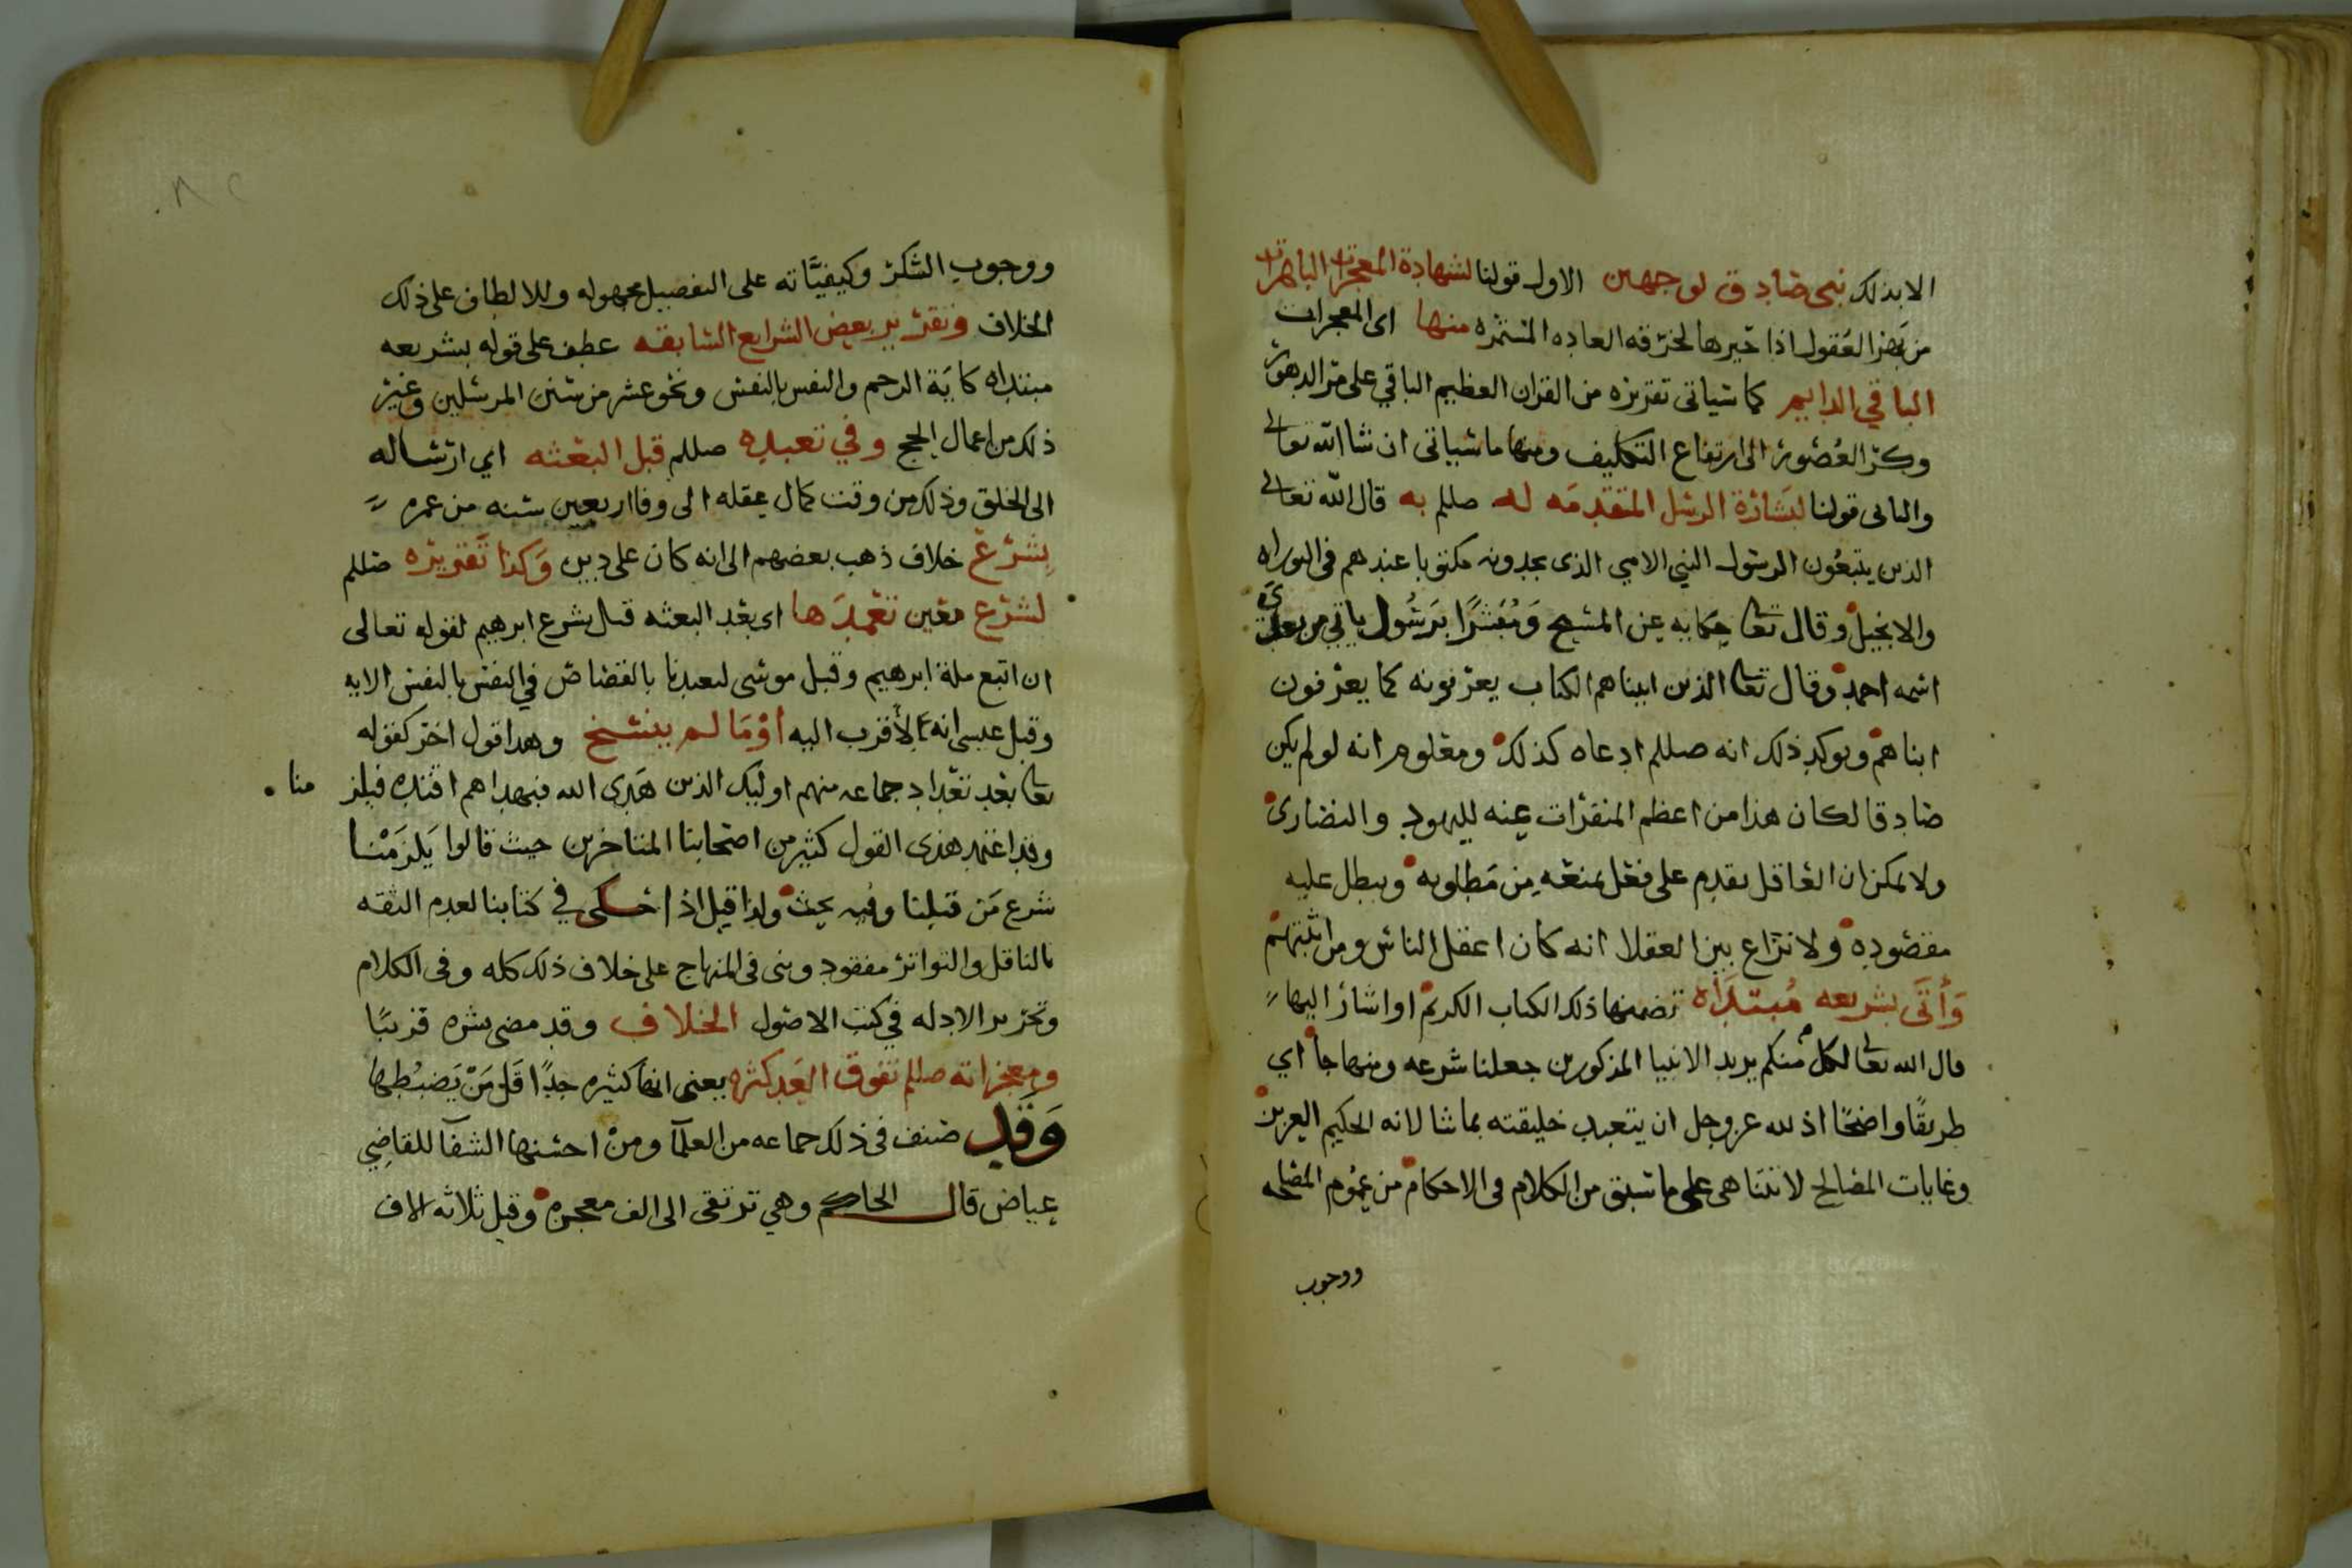 الا بذلك نبي صادق لوجهين الاول قولنا لشهادة المعجزات الباهرات
من بهز العقول اذا حيرها لخرقه العاده المستمره منها اى المعجزات
الباقي الدايم كما سياتى تقريره من القران العظيم الباقي على مر الدهور
وكر العصور الى ارتفاع التكليف ومنها ما سياتى ان شا الله تعالى
والثانى قولنا لبشارة الرسل المتقدمه له صللم به قال الله تعالى
الذين يتبعون الرسول النبي الامي الذى يجدونه مكتوبا عندهم فى التوراه
والانجيل وقال تعا حكايه عن المسيح ومبشرا برسول ياتي من بعدى
اسمه احمد وقال تعا الذين اتيناهم الكتاب يعرفونه كما يعرفون
ابناهم ويوكد ذلك انه صللم ادعاه كذلك ومعلوم انه لو لم يكن
صادقا لكان هذا من اعظم المنفرات عنه لليهود والنصارى
ولا يمكن ان العاقل يقدم على فعل يمنعه من مطلوبه ويبطل عليه
مقصوده ولا نزاع بين العقلا انه كان اعقل الناس ومن اثبتهم
وأتى بشريعه مبتداه تضمنها ذلك الكتاب الكريم او اشار اليها
قال الله تعالى لكل منكم يريد الانبيا المذكورين جعلنا شرعه ومنهاجا أي
طريقًا واضحًا اذ لله عز وجل ان يتعبد خليقته بما شا لانه الحكيم العزيز
وغايات المصالح لا تتناهى على ما سبق من الكلام فى الاحكام من عموم المصلحه
ووجوب
ووجوب الشكر وكيفيَّاته على التفصيل مجهوله وللالطاف على ذلك
الخلاف وتقرير بعض الشرايع السابقه عطف على قوله بشريعه
مبتداه كاية الرجم والنفس بالنفس ونحو عشر من سنن المرسلين وغير
ذلك من اعمال الحج وفي تعبده صللم قبل البعثه اي ارساله
الى الخلق وذلك من وقت كمال عقله الى وفا اربعين سنه من عمره
بشرع خلاف ذهب بعضهم الى انه كان على دين وكذا تقريره صللم
لشرع معين تعمدها اى بعد البعثه قيل بشرع ابرهيم لقوله تعالى
ان اتبع ملة ابرهيم وقيل موسى لتعبدنا بالقصاص في النفس بالنفس الايه
وقيل عيسى انه الأقرب اليه أو ما لم ينسخ وهذا قول اخر كقوله
تعا بعد تعداد جماعه منهم اوليك الذين هَدى الله فبهداهم اقتده فيلز منا
وقد اعتمد هذى القول كثير من اصحابنا المتاخرين حيث قالوا يَلزَمْنا
شرع مَن قبلنا وفيه بحث ولذا قيل اذا حكى في كتابنا لعدم الثقه
بالناقل والتواتر مفقود وبنى فى المنهاج على خلاف ذلك كله وفى الكلام
وتحرير الادله في كتب الاصول الخلاف وقد مضى بشره قريبًا
ومعجزاته صللم تفوق العَد كثره يعنى انها كثيره جدًا قَل مَن يَضبُطها
وَقَد صنف فى ذلك جماعه من العلمآ ومن احسنها الشفآ للقاضِي
عياض قال الحاكم وهي ترتقى الى الف معجزه وقيل ثلاثه الاف